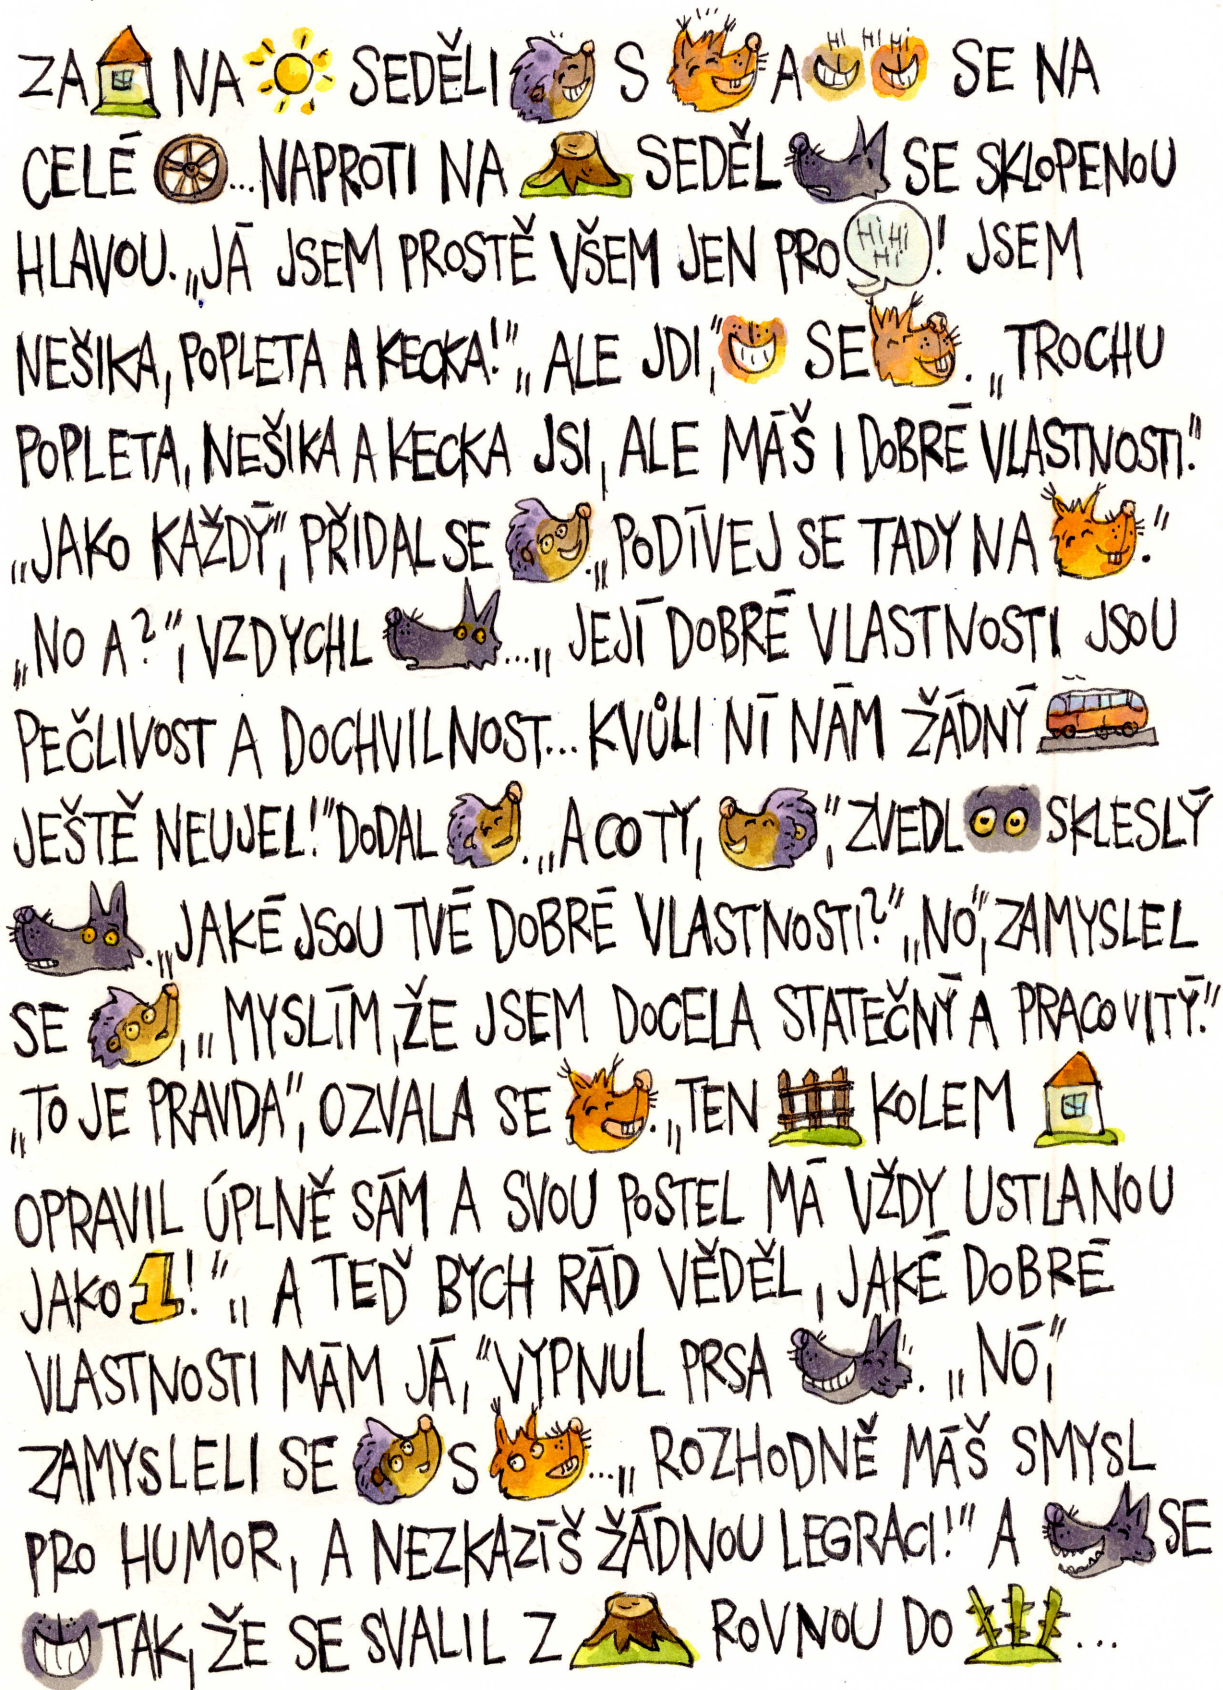 ZA NA SEDĚLI S A HI HI HI SE NA
CELÉ ...NAPROTI NA SEDĚL SE SKLOPENOU
HLAVOU. „JÁ JSEM PROSTĚ VŠEM JEN PRO HIHI HI! JSEM
NEŠIKA, POPLETA A KECKA!“ „ALE JDI,“ SE . „TROCHU
POPLETA, NEŠIKA A KECKA JSI, ALE MÁŠ I DOBRÉ VLASTNOSTI.“
„JAKO KAŽDÝ“, PŘIDAL SE . „PODÍVEJ SE TADY NA .“
„NO A?“, VZDYCHL ... „JEJÍ DOBRÉ VLASTNOSTI JSOU
PEČLIVOST A DOCHVILNOST... KVŮLI NÍ NÁM ŽÁDNÝ
JEŠTĚ NEUJEL!“ DODAL . „A CO TY, “, ZVEDL SKLESLÝ
. „JAKÉ JSOU TVÉ DOBRÉ VLASTNOSTI?“ „NO“, ZAMYSLEL
SE , „MYSLÍM, ŽE JSEM DOCELA STATEČNÝ A PRACOVITÝ.“
„TO JE PRAVDA“, OZVALA SE . „TEN KOLEM
OPRAVIL ÚPLNĚ SÁM A SVOU POSTEL MÁ VŽDY USTLANOU
JAKO 1!“ „A TEĎ BYCH RÁD VĚDĚL, JAKÉ DOBRÉ
VLASTNOSTI MÁM JÁ,“ VYPNUL PRSA . „NÓ,“
ZAMYSLELI SE S ... „ROZHODNĚ MÁŠ SMYSL
PRO HUMOR, A NEZKAZÍŠ ŽÁDNOU LEGRACI!“ A SE
TAK, ŽE SE SVALIL Z ROVNOU DO ...